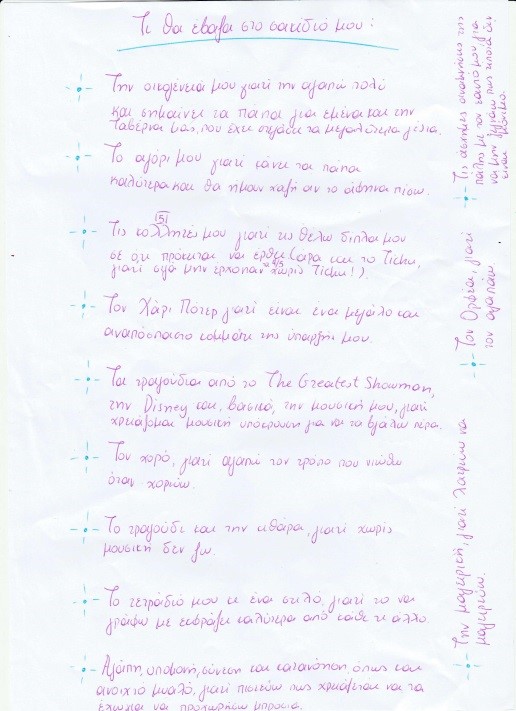 Τι θα έβαζα στο σακίδιό μου:
Την οικογένεια μου γιατί την αγαπώ πολύ
και σημαίνει τα πάντα για εμένα και την
ταβέρνα μας, που έχει στεγάσει τα μεγαλύτερα γέλια.
Το αγόρι μου γιατί κάνει τα πάντα
καλύτερα και θα ήμουν χαζή αν το άφηνα πίσω.
(5)
Τις κολλητές μου γιατί τις θέλω δίπλα μου
σε ότι πρόκειται να έρθει (άρα και το Tichu,
γιατί σιγά μην ερχόταν χωρίς Tichu!).
Τον Χάρι Πότερ γιατί είναι ένα μεγάλο και
αναπόσπαστο κομμάτι της ύπαρξής μου.
Τα τραγούδια από το The Greatest Showman,
την Disney και, βασικά, την μουσική μου, γιατί
χρειάζομαι μουσική υπόκρουση για να τα βγάλω πέρα.
Τον χορό, γιατί αγαπώ τον τρόπο που νιώθω
όταν χορεύω.
Το τραγούδι και την κιθάρα, γιατί χωρίς
μουσική δεν ζω.
Το τετράδιό μου κι ένα στυλό, γιατί το να
γράφω με εκφράζει καλύτερα από κάθε τι άλλο.
Αγάπη, υπομονή, σύνεση και κατανόηση, όπως και
ανοιχτό μυαλό, γιατί πιστεύω πως χρειάζεται να τα
έχω για να προχωρήσω μπροστά.
Τις ασκήσεις αναπνοής της
πάλης με τον εαυτό μου για
να μην ξεχνάω πως τίποτα δεν
είναι μόνιμο.
Τον Ορφέα, γιατί
τον αγαπάω.
Την μαγειρική, γιατί λατρεύω να
μαγειρεύω.